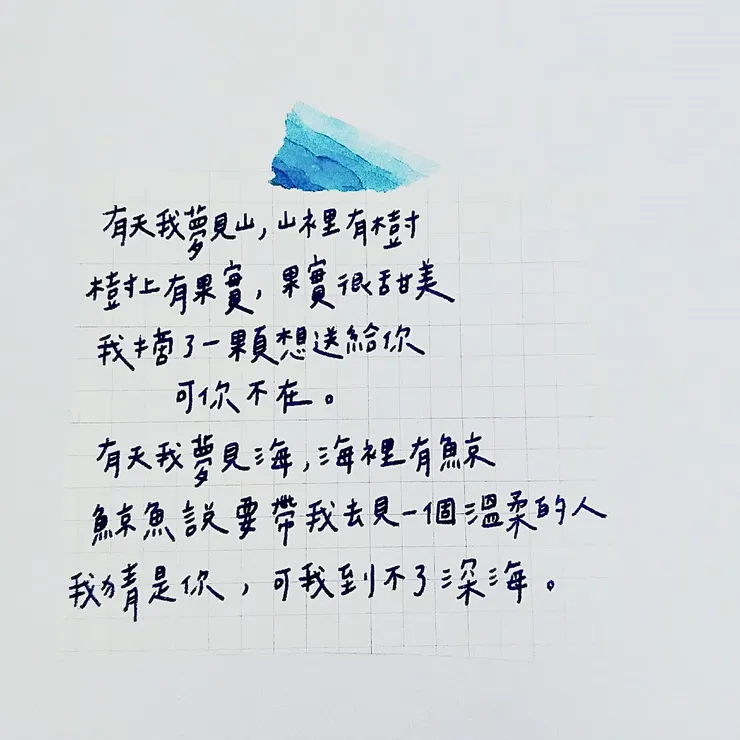 有天我夢見山,山裡有樹
樹上有果實,果實很甜美
我摘了一顆想送給你
可你不在。
有天我夢見海,海裡有鯨
鯨魚說要帶我去見一個溫柔的人
我猜是你,可我到不了深海。